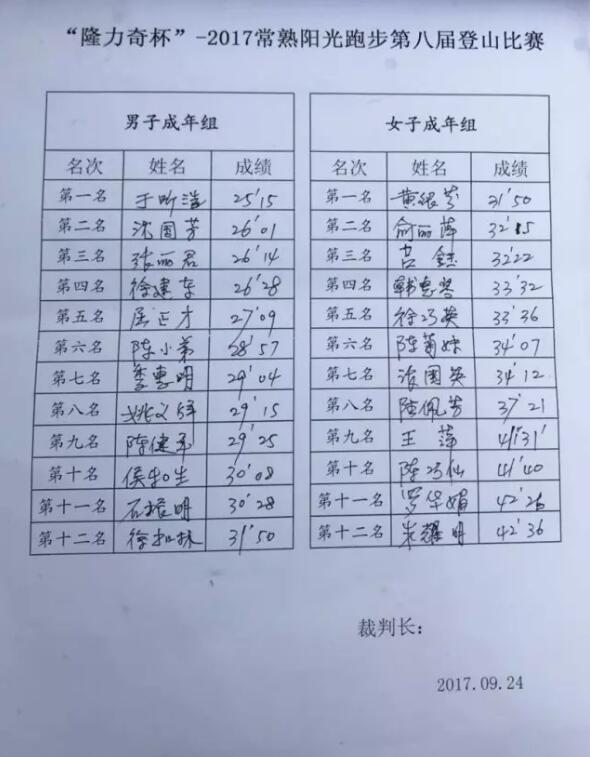 “隆力奇杯”-2017常熟阳光跑步第八届登山比赛
男子成年组
名次 姓名 成绩
第一名 于昕浩 25'15
第二名 沈国芳 26'01
第三名 张丽君 26'14
第四名 徐建车 26'28
第五名 屈正才 27'09
第六名 陈小弟 28'57
第七名 季惠明 29'04
第八名 姚文 29'15
第九名 陈健 29'25
第十名 侯和生 30'08
第十一名 石根明 30'28
第十二名 徐和林 31'50
女子成年组
名次 姓名 成绩
第一名 黄银芬 31'50
第二名 俞丽萍 32'15
第三名 32'22
第四名 韩惠 33'32
第五名 徐巧英 33'36
第六名 陈菊妹 34'07
第七名 国英 34'12
第八名 陆佩芳 37'21
第九名 王萍 41'31'
第十名 陈巧仙 41'40
第十一名 罗华娟 42'26
第十二名 朱耀明 42'36
裁判长：
2017.09.24